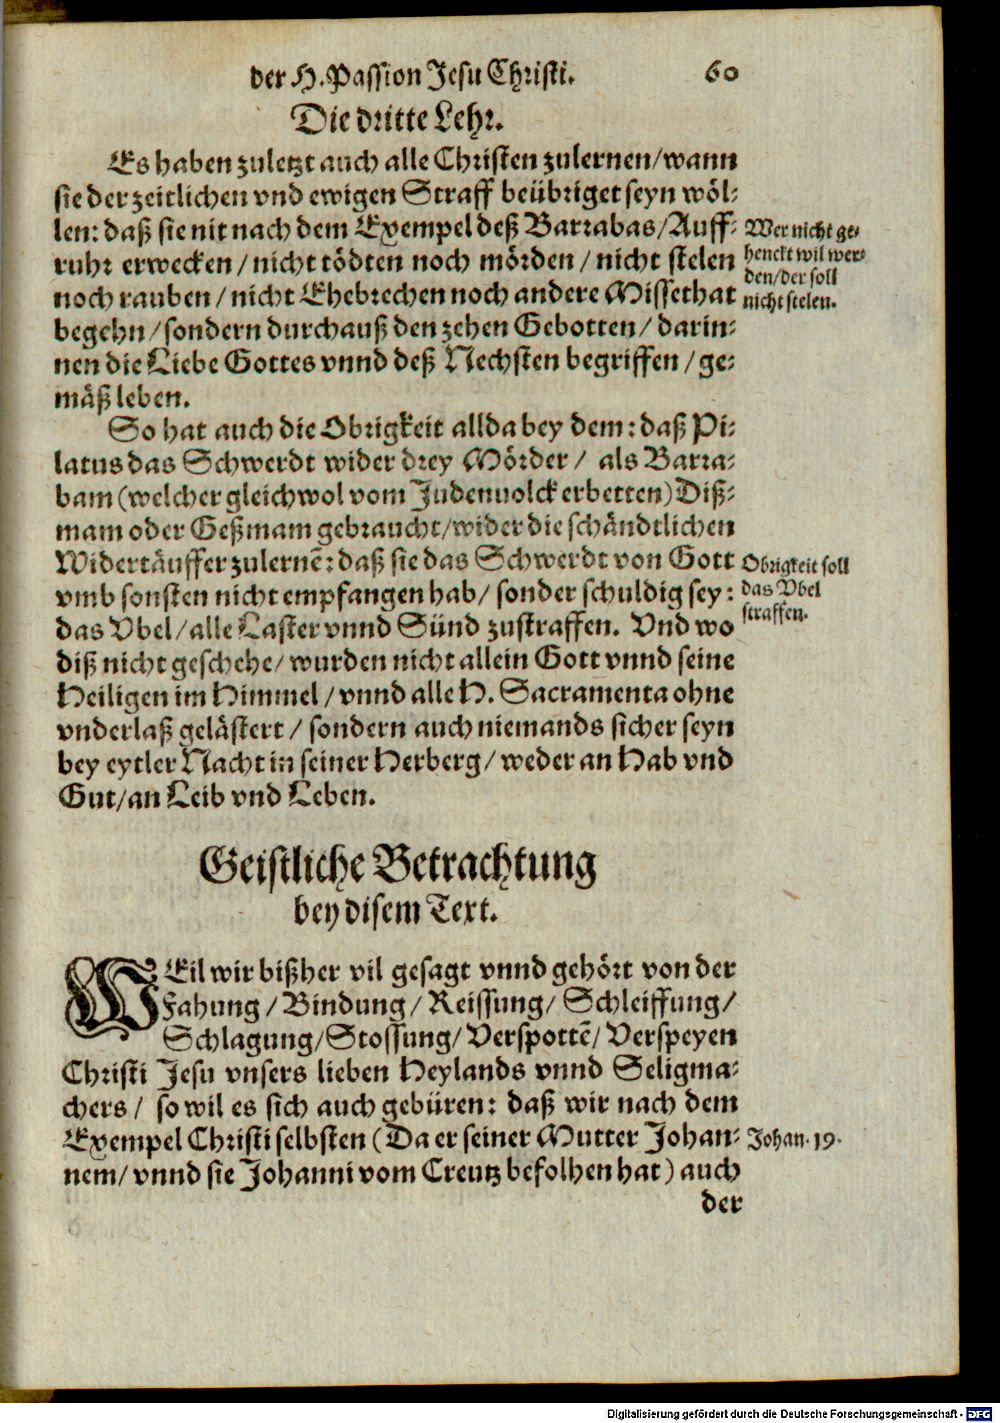 der H. Passion Jesu Christi. 60
Die dritte Lehr.
Es haben zuletzt auch alle Christen zulernen/wann
sie der zeitlichen vnd ewigen Straff beübriget seyn wöl⸗
len: daß sie nit nach dem Exempel deß Barrabas/Auff⸗
ruhr erwecken/nicht tödten noch mörden/nicht stelen
noch rauben/nicht Ehebrechen noch andere Missethat
begehn/sondern durchauß den zehen Gebotten/darin⸗
nen die Liebe Gottes vnnd deß Nechsten begriffen/ge⸗
mäß leben.
Wer nicht ge⸗
henckt wil wer⸗
den/der soll
nicht stelen.
So hat auch die Obrigkeit allda bey dem: daß Pi⸗
latus das Schwerdt wider drey Mörder/ als Barra⸗
bam (welcher gleichwol vom Judenuolck erbetten) Diß⸗
mam oder Geßmam gebraucht/wider die schändtlichen
Widertäuffer zulernē: daß sie das Schwerdt von Gott
vmb sonsten nicht empfangen hab/ sonder schuldig sey:
das Vbel/alle Laster vnnd Sünd zustraffen. Vnd wo
diß nicht geschehe/ wurden nicht allein Gott vnnd seine
Heiligen im Himmel/vnnd alle H. Sacramenta ohne
vnderlaß gelästert/ sondern auch niemands sicher seyn
bey eytler Nacht in seiner Herberg/weder an Hab vnd
Gut/an Leib vnd Leben.
Obrigkeit soll
das Vbel
straffen.
Geistliche Betrachtung
bey disem Text.
WEil wir bißher vil gesagt vnnd gehört von der
Fahung/Bindung/Reissung/Schleiffung/
Schlagung/Stossung/Verspottē/Verspeyen
Christi Jesu vnsers lieben Heylands vnnd Seligma⸗
chers/ so wil es sich auch gebüren: daß wir nach dem
Exempel Christi selbsten (Da er seiner Mutter Johan⸗
nem/vnnd sie Johanni vom Creutz befolhen hat) auch
Johan. 19.
der
Digitalisierung gefördert durch die Deutsche Forschungsgemeinschaft - DFG